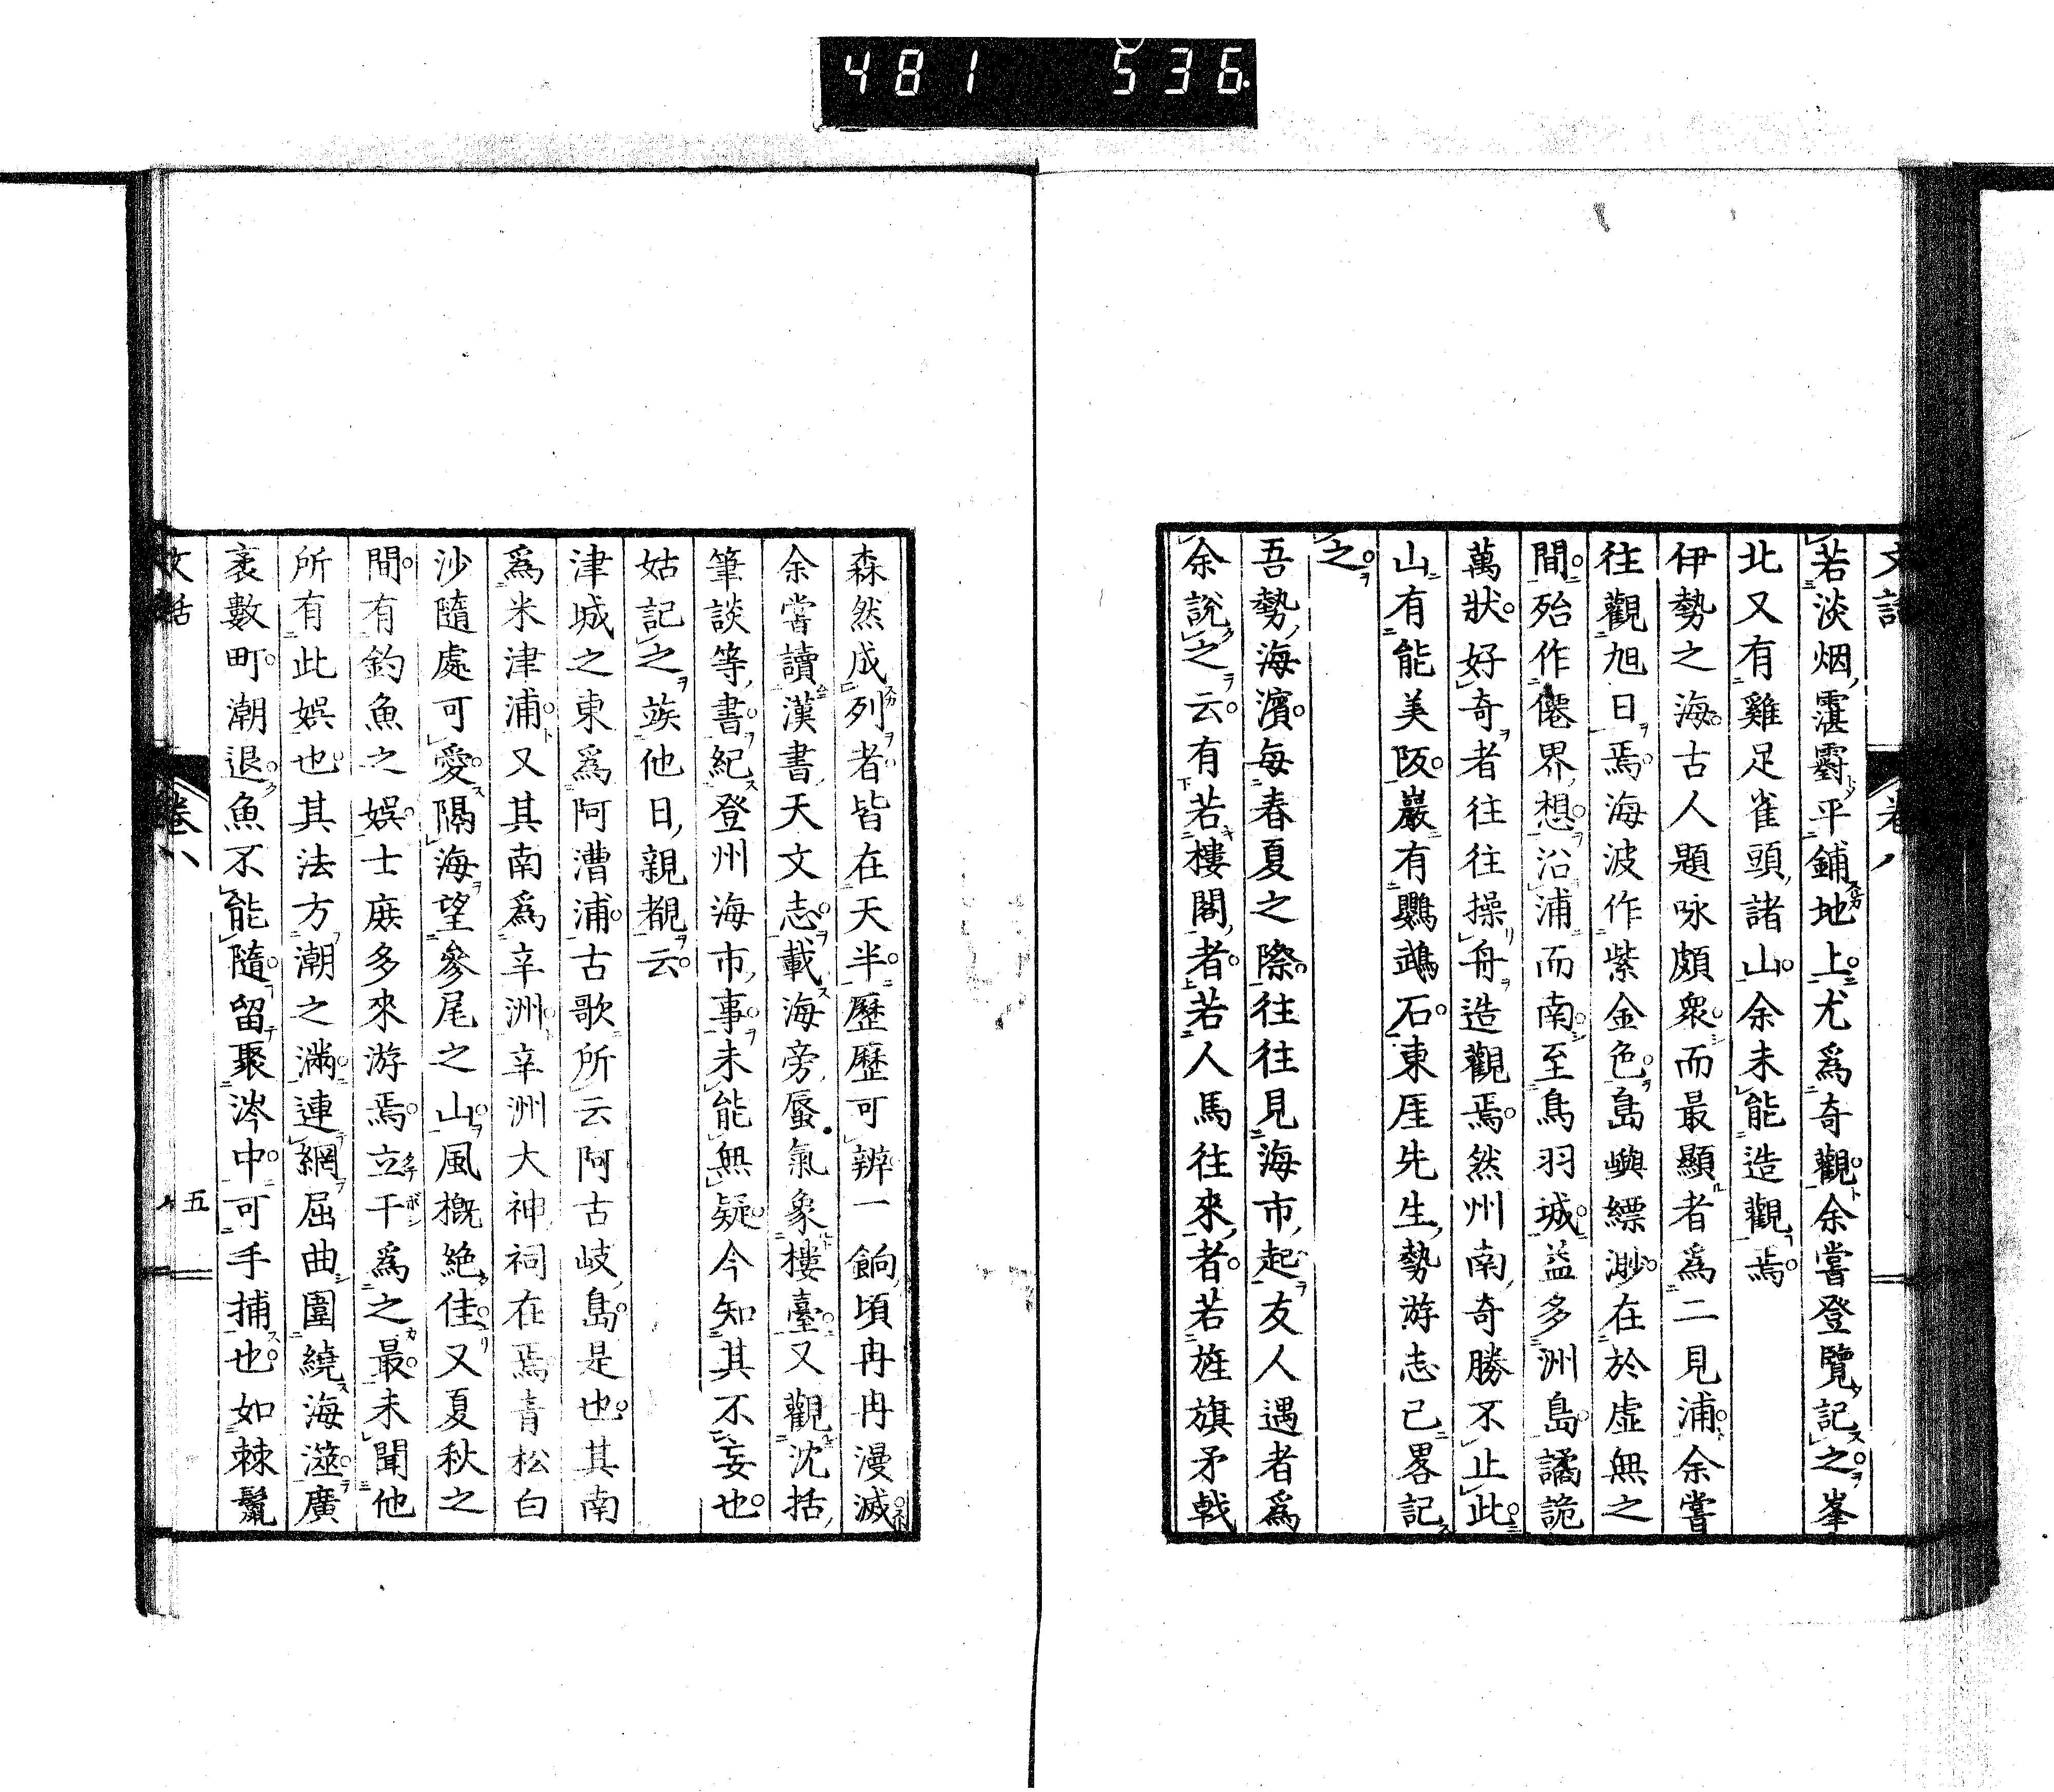 481 536
文話 卷八
若淡烟靄霨平鋪地上尤爲奇觀余嘗登覽記之峯
北又有雞足雀頭諸山余未能造觀焉
伊勢之海古人題咏頗衆而最顯者爲二見浦余嘗
往觀旭日焉海波作紫金色島嶼縹渺在於虛無之
間殆作僊界想沿浦而南至鳥羽城益多洲島譎詭
萬狀好奇者往往操舟造觀焉然州南奇勝不止此
山有能美阪巖有鸚鵡石東厓先生勢游志已畧記
之
吾勢海濱每春夏之際往往見海市起友人遇者爲
余說之云有若樓閣者若人馬往來者若旌旗矛戟
森然成列者皆在天半歷歷可辨一餉頃冉冉漫滅
余嘗讀漢書天文志載海旁蜃氣象樓臺又觀沈括
筆談等書紀登州海市事未能無疑今知其不妄也
姑記之竢他日親覩云
津城之東爲阿漕浦古歌所云阿古岐島是也其南
爲米津浦又其南爲辛洲辛洲大神祠在焉青松白
沙隨處可愛隔海望參尾之山風概絶佳又夏秋之
間有釣魚之娯士庶多來游焉立干爲之最未聞他
所有此娯也其法方潮之滿連網屈曲圍繞海澨廣
袤數町潮退魚不能隨留聚涔中可手捕也如棘鬣
文話 卷八 五